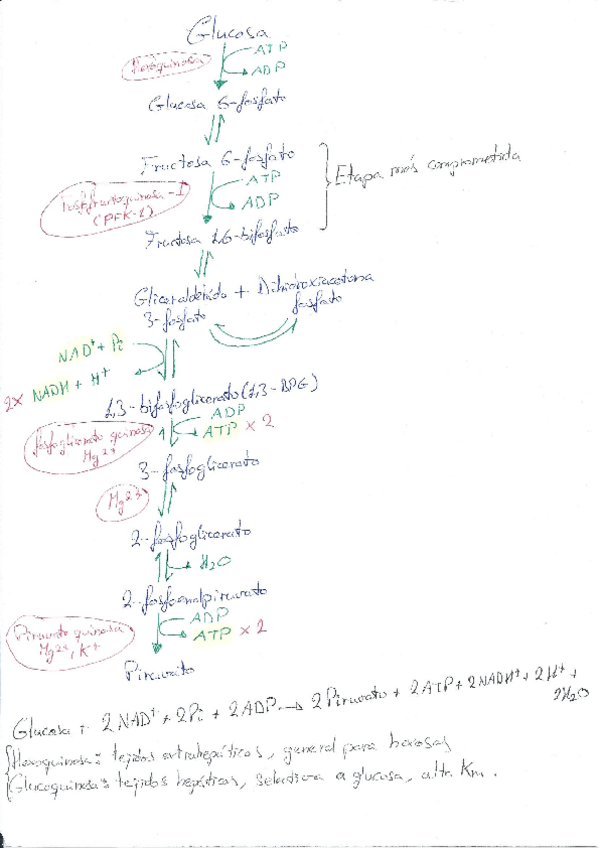 Glucosa
ATP
Hexoquinasa
ADP
Glucosa 6-fosfato
Fructosa 6-fosfato
Etapa más comprometida
ATP
Fosfofructoquinasa-1
(PFK-1)
ADP
Fructosa 1,6-bifosfato
Gliceraldehído + Dihidroxiacetona
3-fosfato fosfato
NAD+ + Pi
2x NADH + H+
1,3-bifosfoglicerato (1,3-BPG)
ADP
fosfoglicerato quinasa
Mg2+
ATP x 2
3-fosfoglicerato
Mg2+
2-fosfoglicerato
H2O
2-fosfoenolpiruvato
ADP
Piruvato quinasa
Mg2+, K+
ATP x 2
Piruvato
Glucosa + 2NAD+ + 2Pi + 2ADP → 2 Piruvato + 2ATP + 2NADH+ + 2H+ +
2H2O
Hexoquinasa: tejidos extrahepáticos, general para hexosas
Glucoquinasa: tejidos hepáticos, selectiva a glucosa, alta Km.